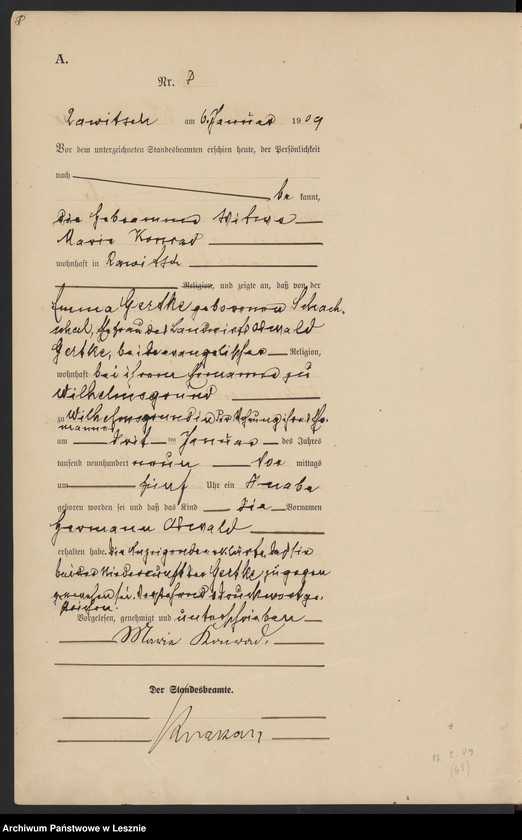 A.
Nr. 8
Rawitsch am 6. Januar 1909
Vor dem unterzeichneten Standesbeamten erschien heute, der Persönlichkeit
nach
be kannt,
die Hebeamme Witwe
Marie Konrad
wohnhaft in Rawitsch
Religion, und zeigte an, daß von der
Emma Gertke geborenen Schach-
schal, Ehefrau des Landwirts Oswald
Gertke, beide evangelischer Religion,
wohnhaft bei ihrem Ehemanne zu
Wilhelmsgrund
zu Wilhelmsgrund in der Wohnung ihres Ehe-
mannes
am drit ten Januar des Jahres
tausend neunhundert neun Vor mittags
um fünf Uhr ein Knabe
geboren worden sei und daß das Kind die Vornamen
Hermann Oswald
erhalten habe. Die Anzeigende erklärte, daß sie
bei der Niederkunft der Gertke zugegen
gewesen sei. Vorstehend Druckworte ge-
strichen.
Vorgelesen, genehmigt und unterschrieben
Marie Konrad.
Der Standesbeamte.
Archiwum Państwowe w Lesznie